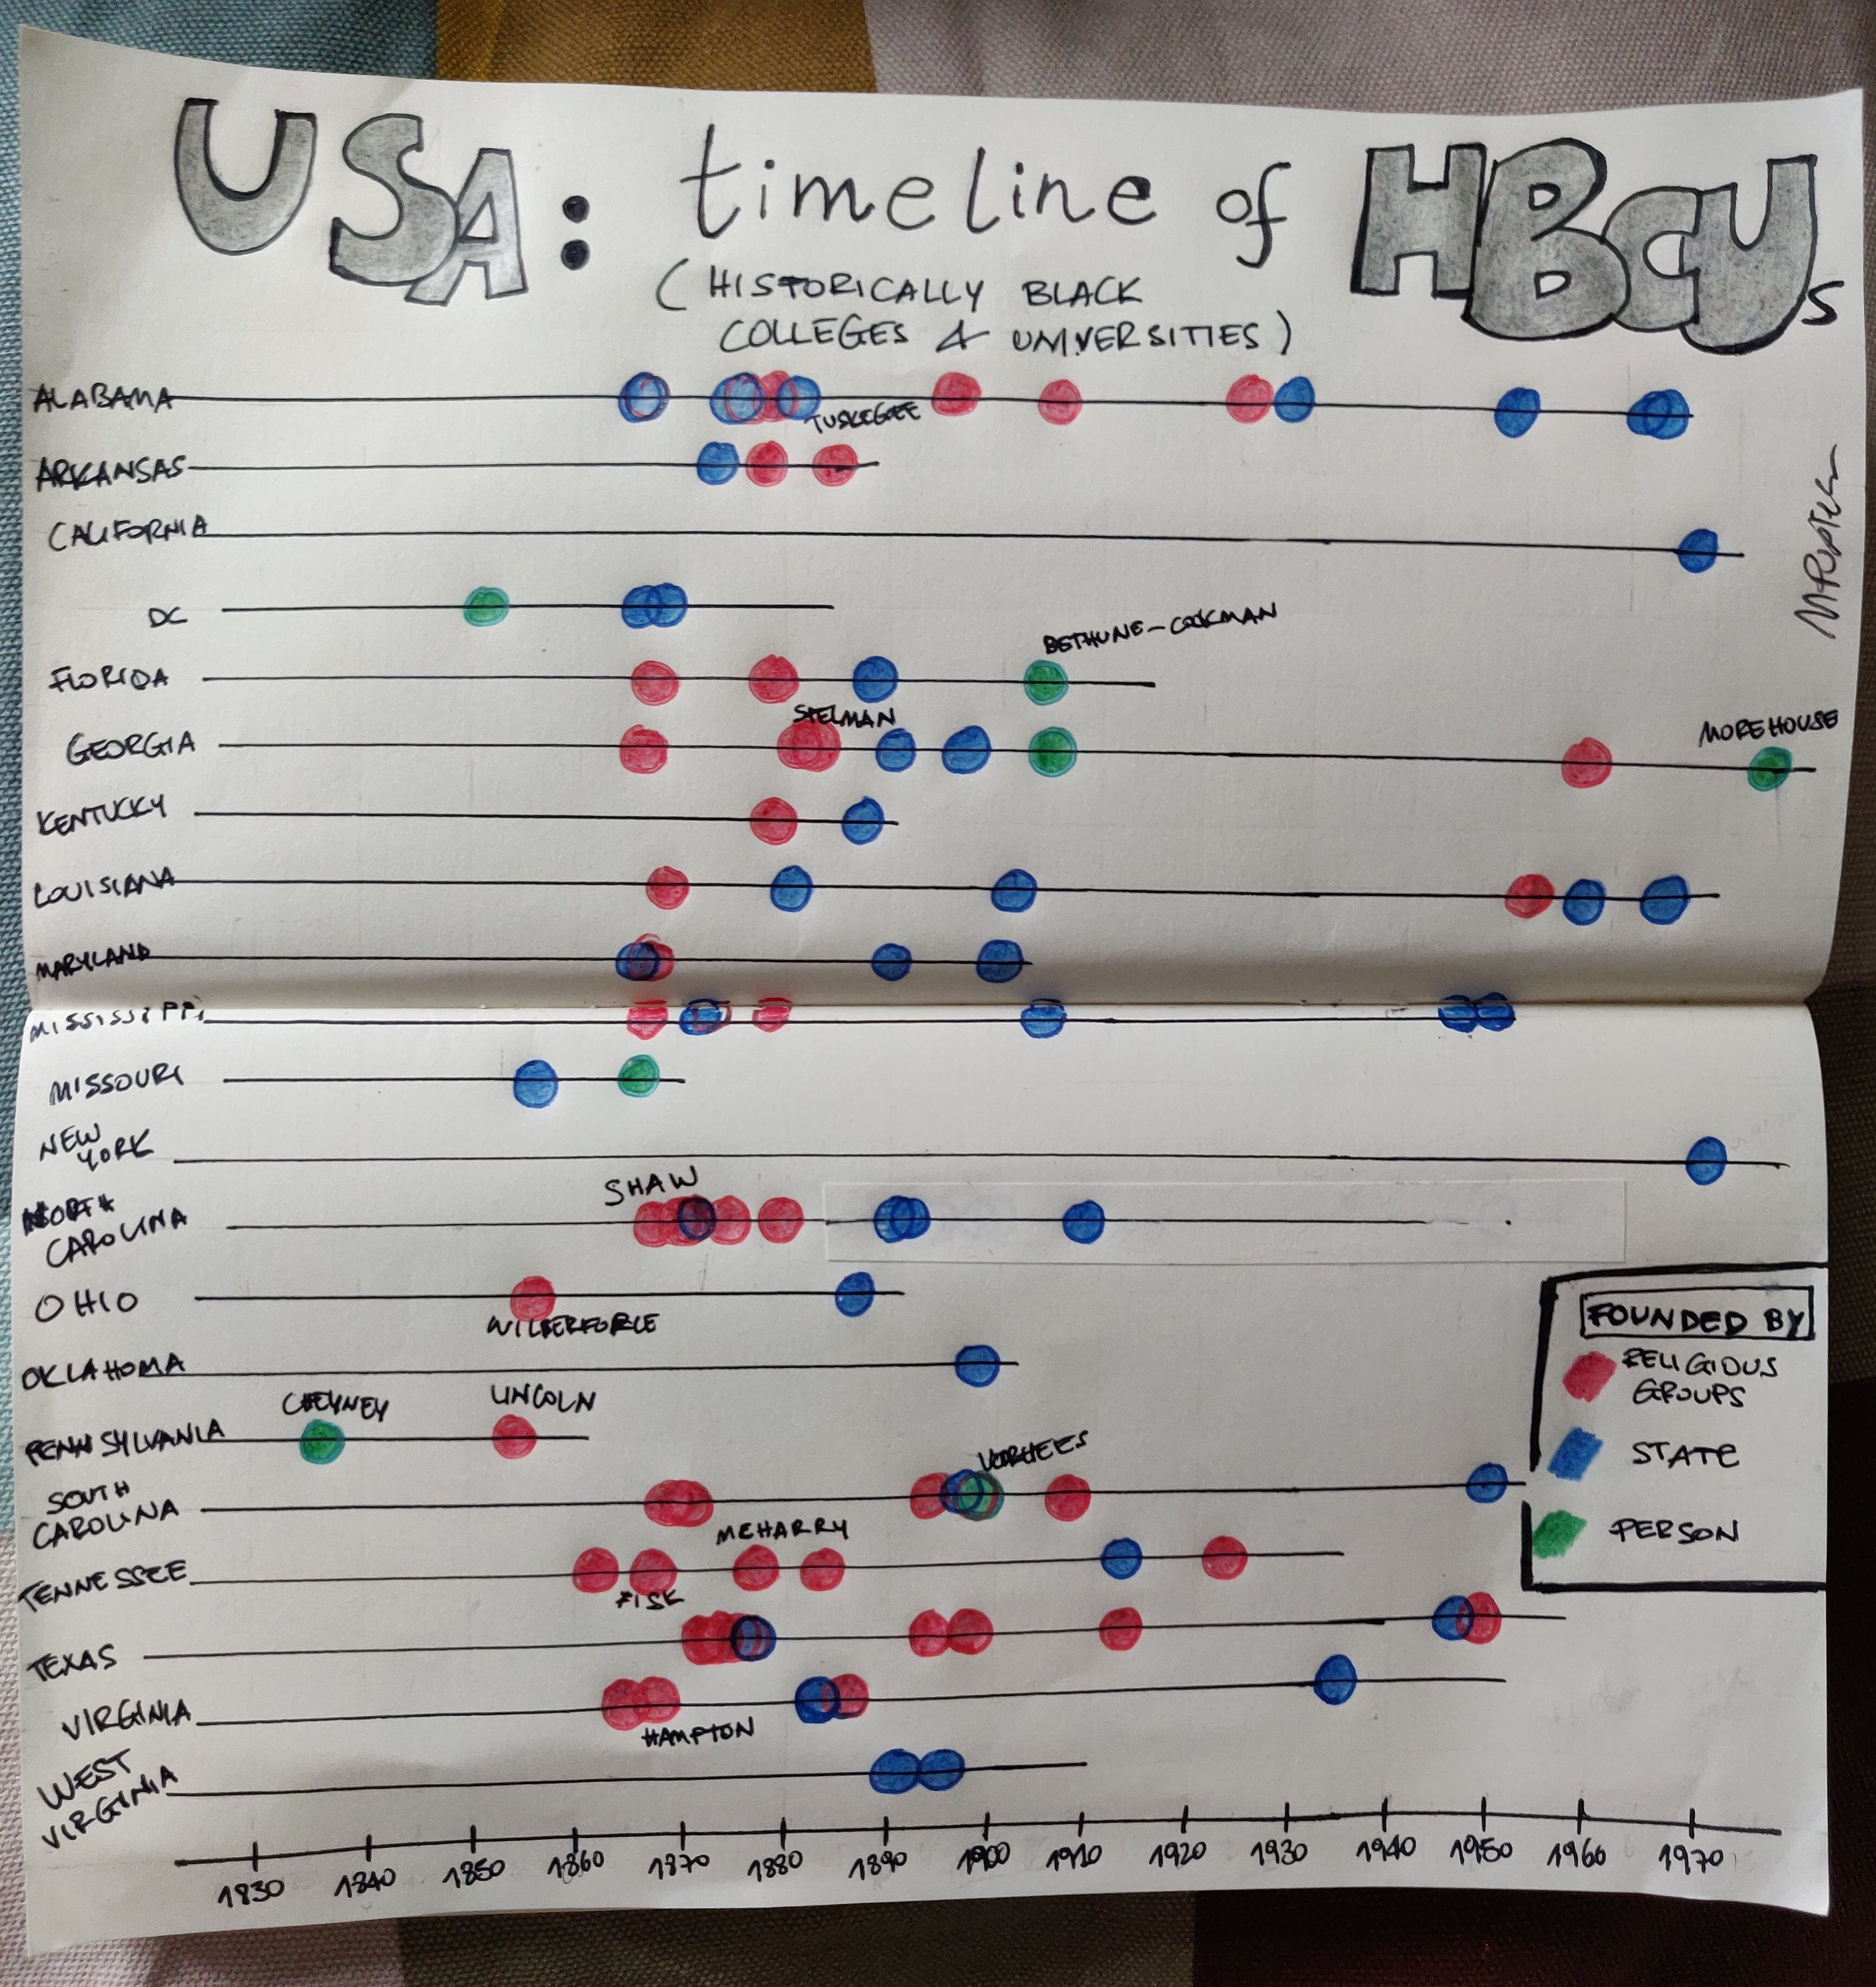 USA: timeline of HBCUs
(HISTORICALLY BLACK
COLLEGES & UNIVERSITIES)
ALABAMA
TUSKEGEE
ARKANSAS
CALIFORNIA
DC
BETHUNE-COOKMAN
FLORIDA
SPELMAN
MOREHOUSE
GEORGIA
KENTUCKY
LOUISIANA
MARYLAND
MISSISSIPPI
MISSOURI
NEW
YORK
SHAW
NORTH
CAROLINA
OHIO
WILBERFORCE
OKLAHOMA
CHEYNEY
LINCOLN
PENNSYLVANIA
VORHEES
SOUTH
CAROLINA
MEHARRY
TENNESSEE
FISK
TEXAS
VIRGINIA
HAMPTON
WEST
VIRGINIA
FOUNDED BY
RELIGIOUS
GROUPS
STATE
PERSON
1830 1840 1850 1860 1870 1880 1890 1900 1910 1920 1930 1940 1950 1960 1970